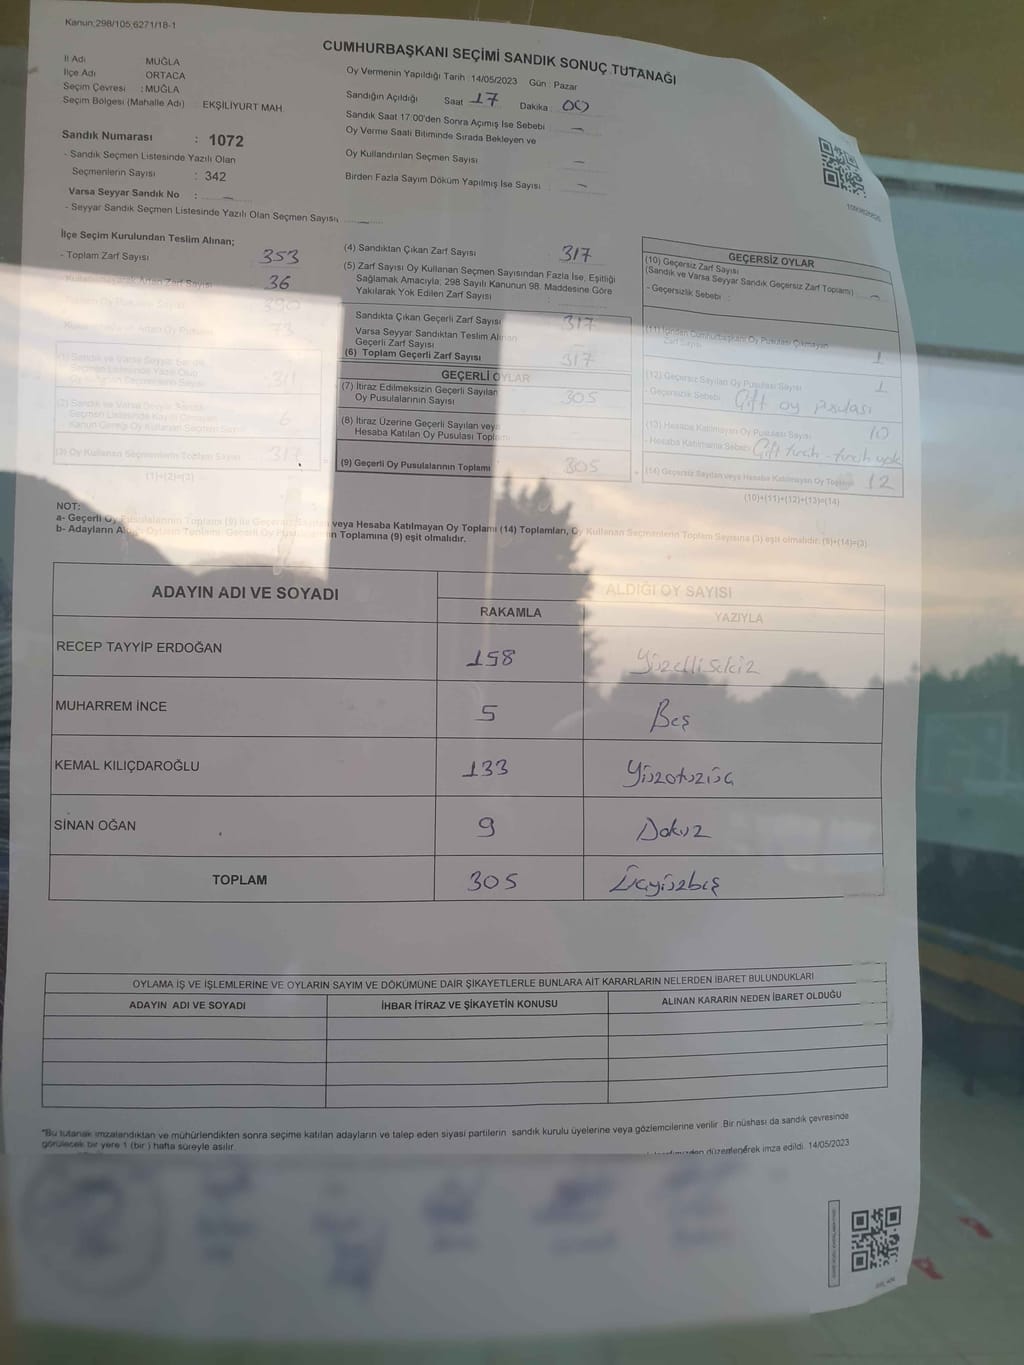 Kanun;298/105,6271/18-1
CUMHURBAŞKANI SEÇİMİ SANDIK SONUÇ TUTANAĞI
İl Adı MUĞLA
İlçe Adı ORTACA
Seçim Çevresi : MUĞLA
Seçim Bölgesi (Mahalle Adı) EKŞİLİYURT MAH.
Sandık Numarası : 1072
- Sandık Seçmen Listesinde Yazılı Olan
Seçmenlerin Sayısı : 342
Varsa Seyyar Sandık No :
- Seyyar Sandık Seçmen Listesinde Yazılı Olan Seçmen Sayısı
Oy Vermenin Yapıldığı Tarih : 14/05/2023 Gün : Pazar
Sandığın Açıldığı Saat 17 Dakika 00
Sandık Saat 17:00'den Sonra Açımış İse Sebebi
Oy Verme Saati Bitiminde Sırada Bekleyen ve
Oy Kullandırılan Seçmen Sayısı
Birden Fazla Sayım Döküm Yapılmış İse Sayısı :
İlçe Seçim Kurulundan Teslim Alınan;
- Toplam Zarf Sayısı 353
- Kullanılmayarak Artan Zarf Sayısı 36
Toplam Oy Pusulası Sayısı 390
Artan Oy Pusulası 73
(1) Sandık ve Varsa Seyyar Sandık
Seçmen Listesinde Yazılı Olup
Oy Kullanan Seçmenlerin Sayısı 311
(2) Sandık ve Varsa Seyyar Sandık
Seçmen Listesinde Kayıtlı Olmayan
Kanun Gereği Oy Kullanan Seçmen Sayısı 6
(3) Oy Kullanan Seçmenlerin Toplam Sayısı 317
(1)+(2)=(3)
(4) Sandıktan Çıkan Zarf Sayısı 317
(5) Zarf Sayısı Oy Kullanan Seçmen Sayısından Fazla İse, Eşitliği
Sağlamak Amacıyla; 298 Sayılı Kanunun 98. Maddesine Göre
Yakılarak Yok Edilen Zarf Sayısı
Sandıkta Çıkan Geçerli Zarf Sayısı 317
Varsa Seyyar Sandıktan Teslim Alınan
Geçerli Zarf Sayısı
(6) Toplam Geçerli Zarf Sayısı 317
GEÇERLİ OYLAR
(7) İtiraz Edilmeksizin Geçerli Sayılan
Oy Pusulalarının Sayısı 305
(8) İtiraz Üzerine Geçerli Sayılan veya
Hesaba Katılan Oy Pusulası Toplamı
(9) Geçerli Oy Pusulalarının Toplamı 305
GEÇERSİZ OYLAR
(10) Geçersiz Zarf Sayısı
(Sandık ve Varsa Seyyar Sandık Geçersiz Zarf Toplamı)
- Geçersizlik Sebebi :
(11) İçinden Cumhurbaşkanı Oy Pusulası Çıkmayan
Zarf Sayısı 1
(12) Geçersiz Sayılan Oy Pusulası Sayısı 1
- Geçersizlik Sebebi Çift oy pusulası
(13) Hesaba Katılmayan Oy Pusulası Sayısı 10
- Hesaba Katılmama Sebebi Çift tercih - tercih yok
(14) Geçersiz Sayılan veya Hesaba Katılmayan Oy Toplamı 12
(10)+(11)+(12)+(13)=(14)
NOT:
a- Geçerli Oy Pusulalarının Toplamı (9) ile Geçersiz Sayılan veya Hesaba Katılmayan Oy Toplamı (14) Toplamları, Oy Kullanan Seçmenlerin Toplam Sayısına (3) eşit olmalıdır. (9)+(14)=(3)
b- Adayların Aldığı Oyların Toplamı, Geçerli Oy Pusulalarının Toplamına (9) eşit olmalıdır.
ADAYIN ADI VE SOYADI ALDIĞI OY SAYISI
RAKAMLA YAZIYLA
RECEP TAYYİP ERDOĞAN 158 Yüzellisekiz
MUHARREM İNCE 5 Beş
KEMAL KILIÇDAROĞLU 133 Yüzotuzüç
SİNAN OĞAN 9 Dokuz
TOPLAM 305 Üçyüzbeş
OYLAMA İŞ VE İŞLEMLERİNE VE OYLARIN SAYIM VE DÖKÜMÜNE DAİR ŞİKAYETLERLE BUNLARA AİT KARARLARIN NELERDEN İBARET BULUNDUKLARI
ADAYIN ADI VE SOYADI İHBAR İTİRAZ VE ŞİKAYETİN KONUSU ALINAN KARARIN NEDEN İBARET OLDUĞU
*Bu tutanak imzalandıktan ve mühürlendikten sonra seçime katılan adayların ve talep eden siyasi partilerin sandık kurulu üyelerine veya gözlemcilerine verilir. Bir nüshası da sandık çevresinde
görülecek bir yere 1 (bir) hafta süreyle asılır.
düzenlenerek imza edildi. 14/05/2023